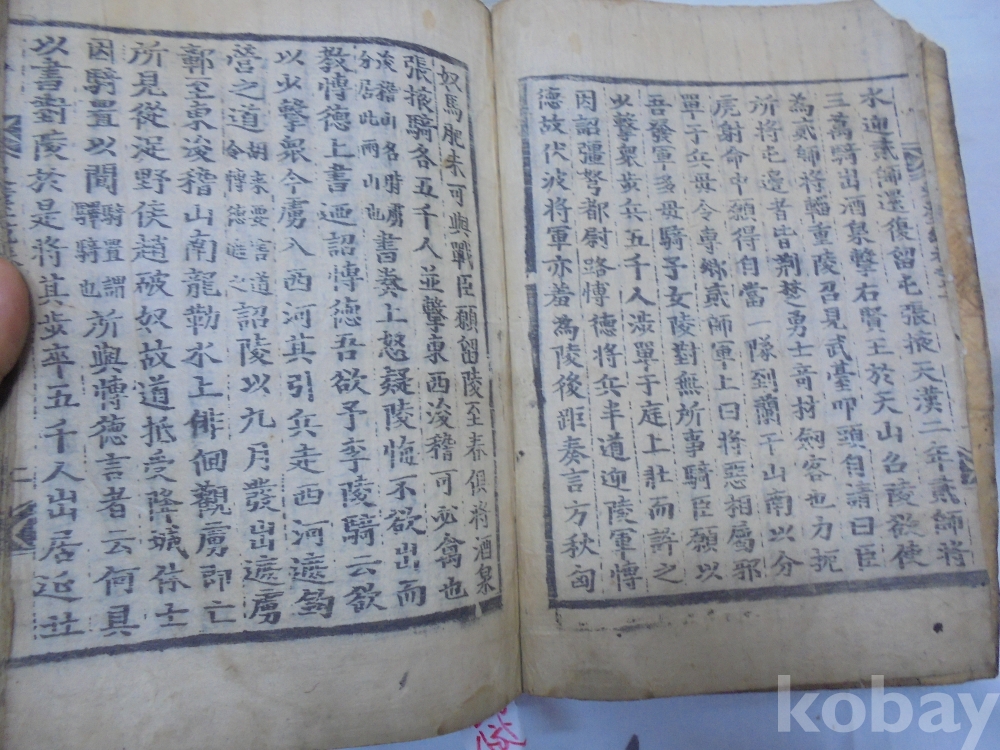 水迎貳師還復留屯張掖天漢二年貳師將
三萬騎出酒泉擊右賢王於天山召陵欲使
為貳師將輜重陵召見武臺叩頭自請曰臣
所將屯邊者皆荆楚勇士竒材劒客也力扼
虎射命中願得自當一隊到蘭干山南以分
單于兵毋令專鄉貳師軍上曰將惡相屬邪
吾發軍多毋騎予女陵對無所事騎臣願以
少擊衆步兵五千人涉單于庭上壯而許之
因詔彊弩都尉路博德將兵半道迎陵軍博
德故伏波將軍亦羞為陵後距奏言方秋匈
奴馬肥未可與戰臣願留陵至春俱將酒泉
張掖騎各五千人並擊東西浚稽可必禽也
浚稽山名時虜分居此兩山也書奏上怒疑陵悔不欲出而
教博德上書迺詔博德吾欲予李陵騎云欲
以少擊衆今虜入西河其引兵走西河遮鉤
營之道胡來要害道令博德遮之詔陵以九月發出遮虜
鄣至東浚稽山南龍勒水上徘徊觀虜即亡
所見從浞野侯趙破奴故道抵受降城休士
因騎置以聞騎置謂驛騎也所與博德言者云何具
以書對陵於是將其步卒五千人出居延北
kobay